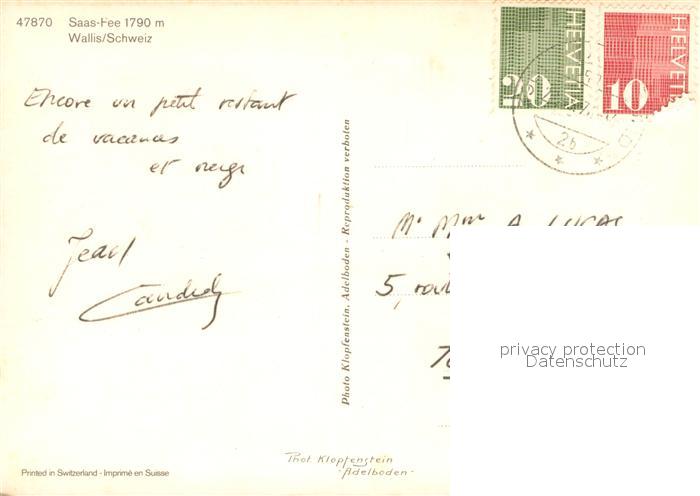 47870 Saas-Fee 1790 m
Wallis/Schweiz
Encore un petit restant
de vacances
et neige
Jean
Photo Klopfenstein, Adelboden - Reproduktion verboten
HELVETIA
20
HELVETI
10
26
M. Mme A. LUCAS
5,
privacy protection
Datenschutz
Phot. Klopfenstein
-Adelboden-
Printed in Switzerland - Imprimé en Suisse